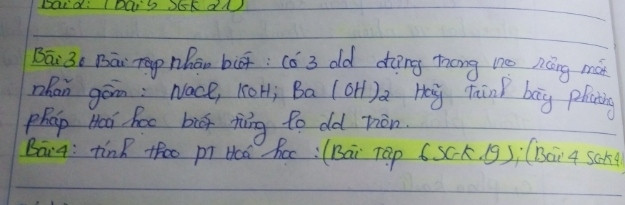 Bài 2: (Bài 5 SGK 21)
Bài 3: Bài tập nhận biết: Có 3 dd đựng trong lọ riêng mất
nhãn gồm: NaCl, KOH; Ba(OH)2 Hãy trình bày phương
pháp Hoá học biết từng lọ dd trên.
Bài 4: tính theo PT Hoá học: (Bài Tập 6 SGK 19); (Bài 4 SGK